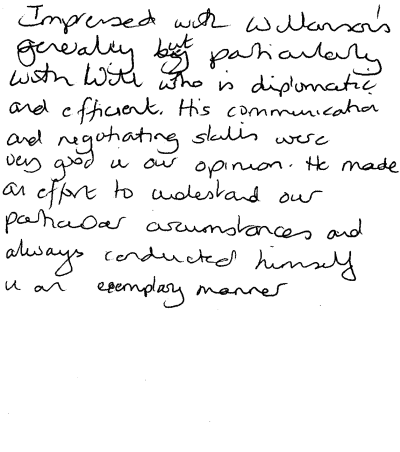 Impressed with Wilkinson's
generally but particularly
with Will who is diplomatic
and efficient. His communication
and negotiating skills were
very good in our opinion. He made
an effort to understand our
particular circumstances and
always conducted himself
in an exemplary manner